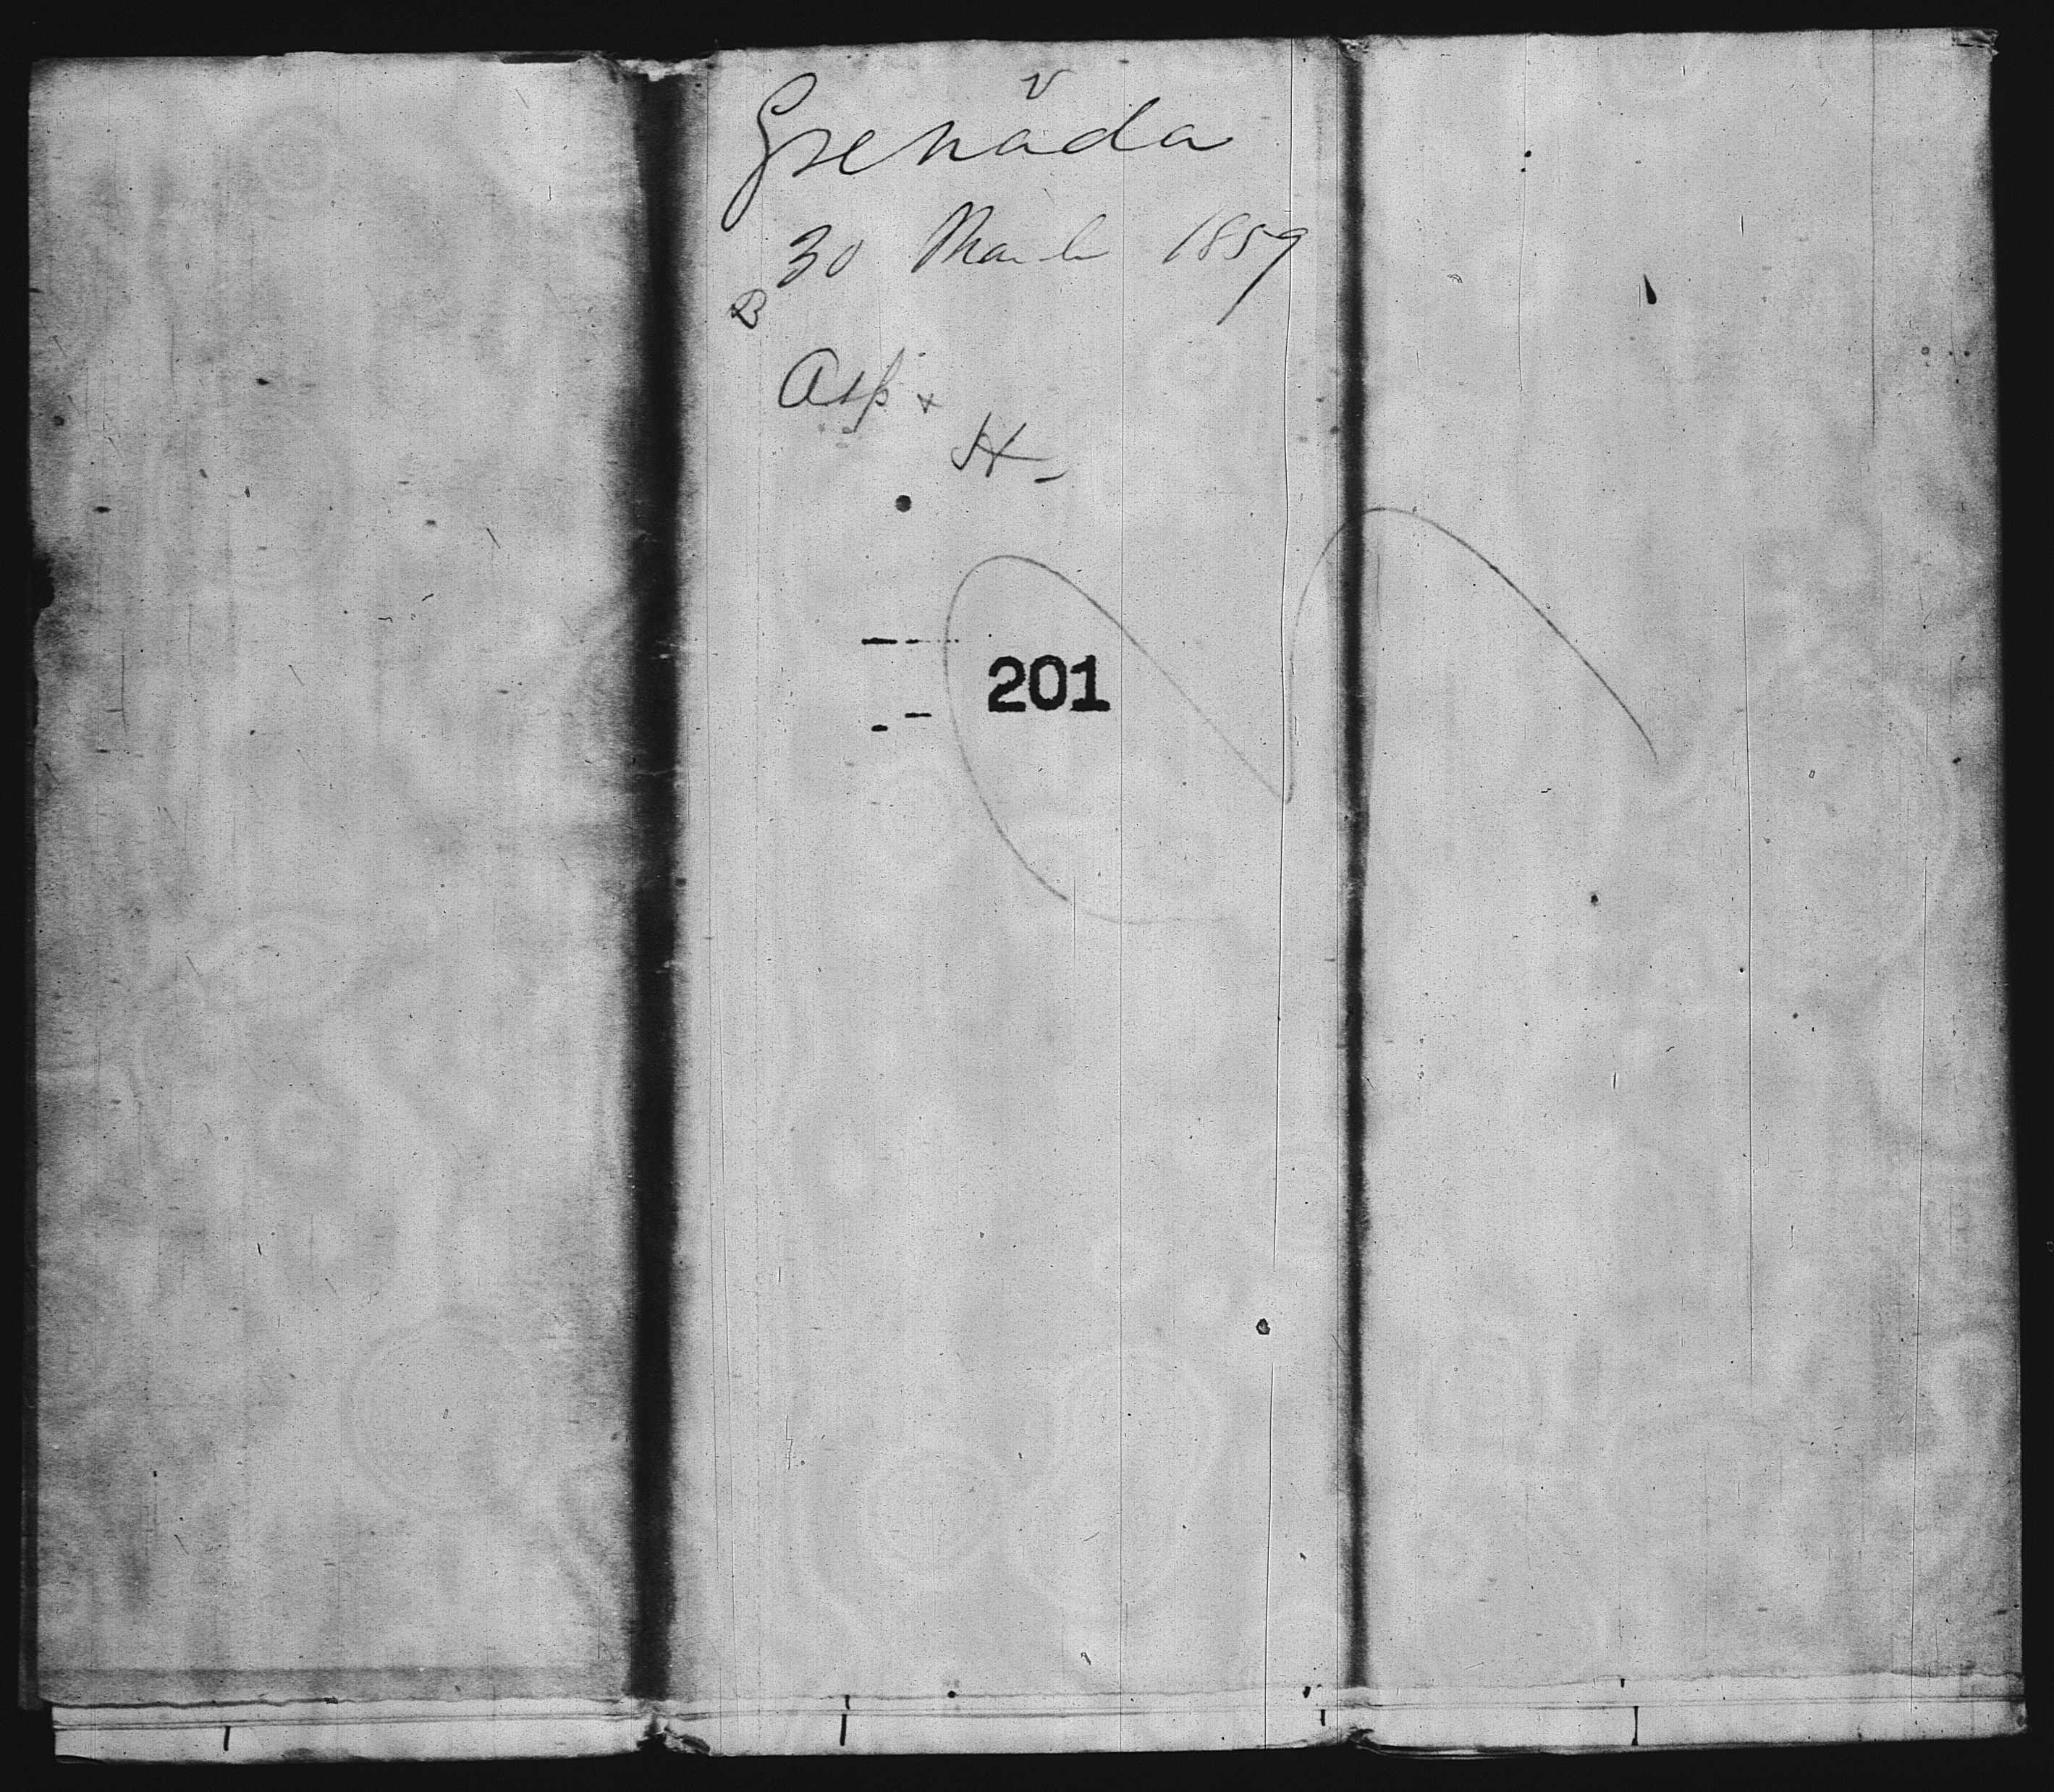 Grenada
30 March 1859
B
Asp. &
H.
201